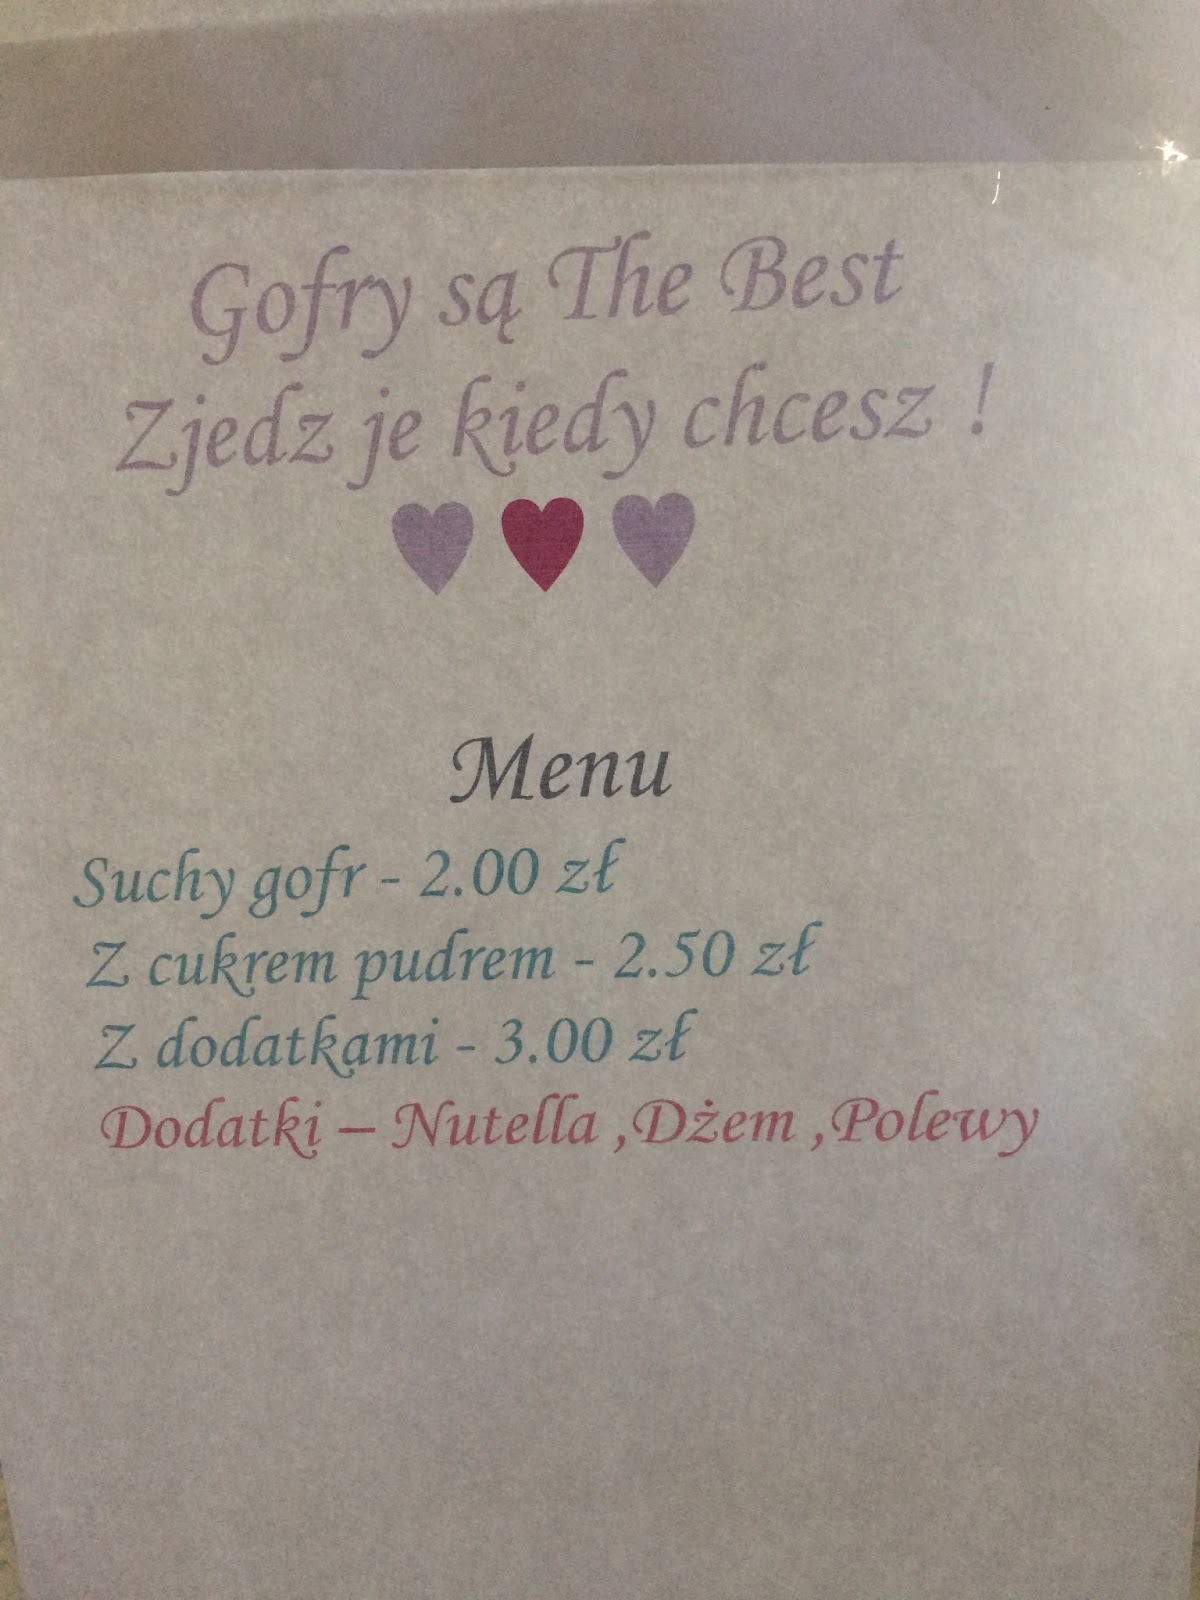 Gofry są The Best
Zjedz je kiedy chcesz !
Menu
Suchy gofr - 2.00 zł
Z cukrem pudrem - 2.50 zł
Z dodatkami - 3.00 zł
Dodatki – Nutella ,Dżem ,Polewy